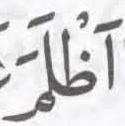 آظْلَمَ